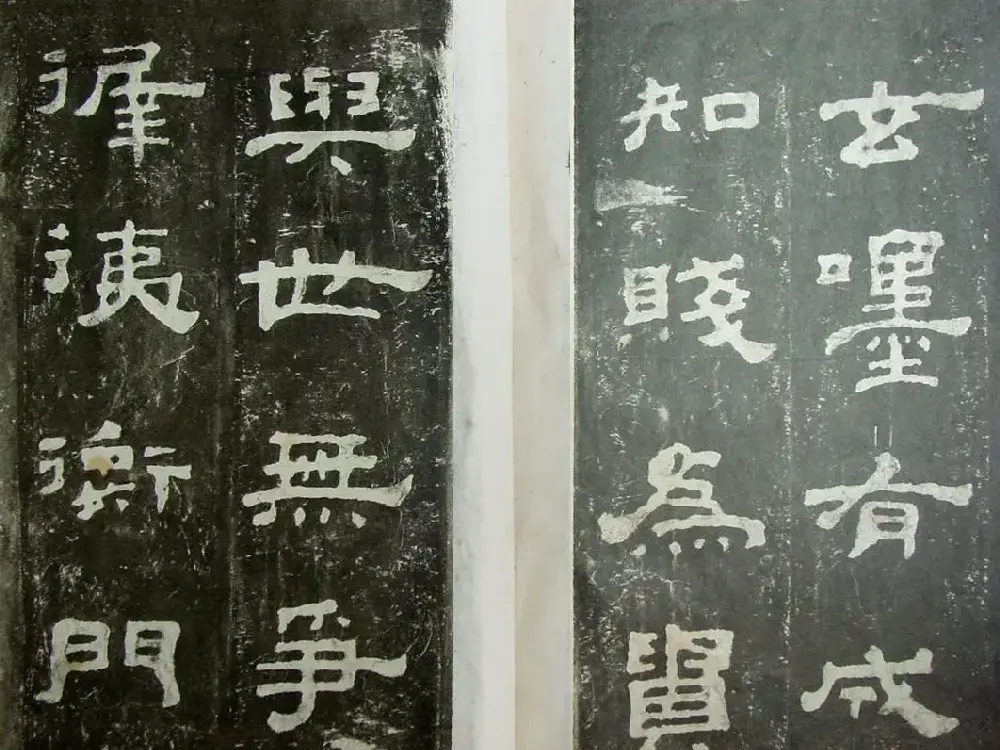 玄嚜有成
知賤為貴
與世無爭
徲㣥衡門